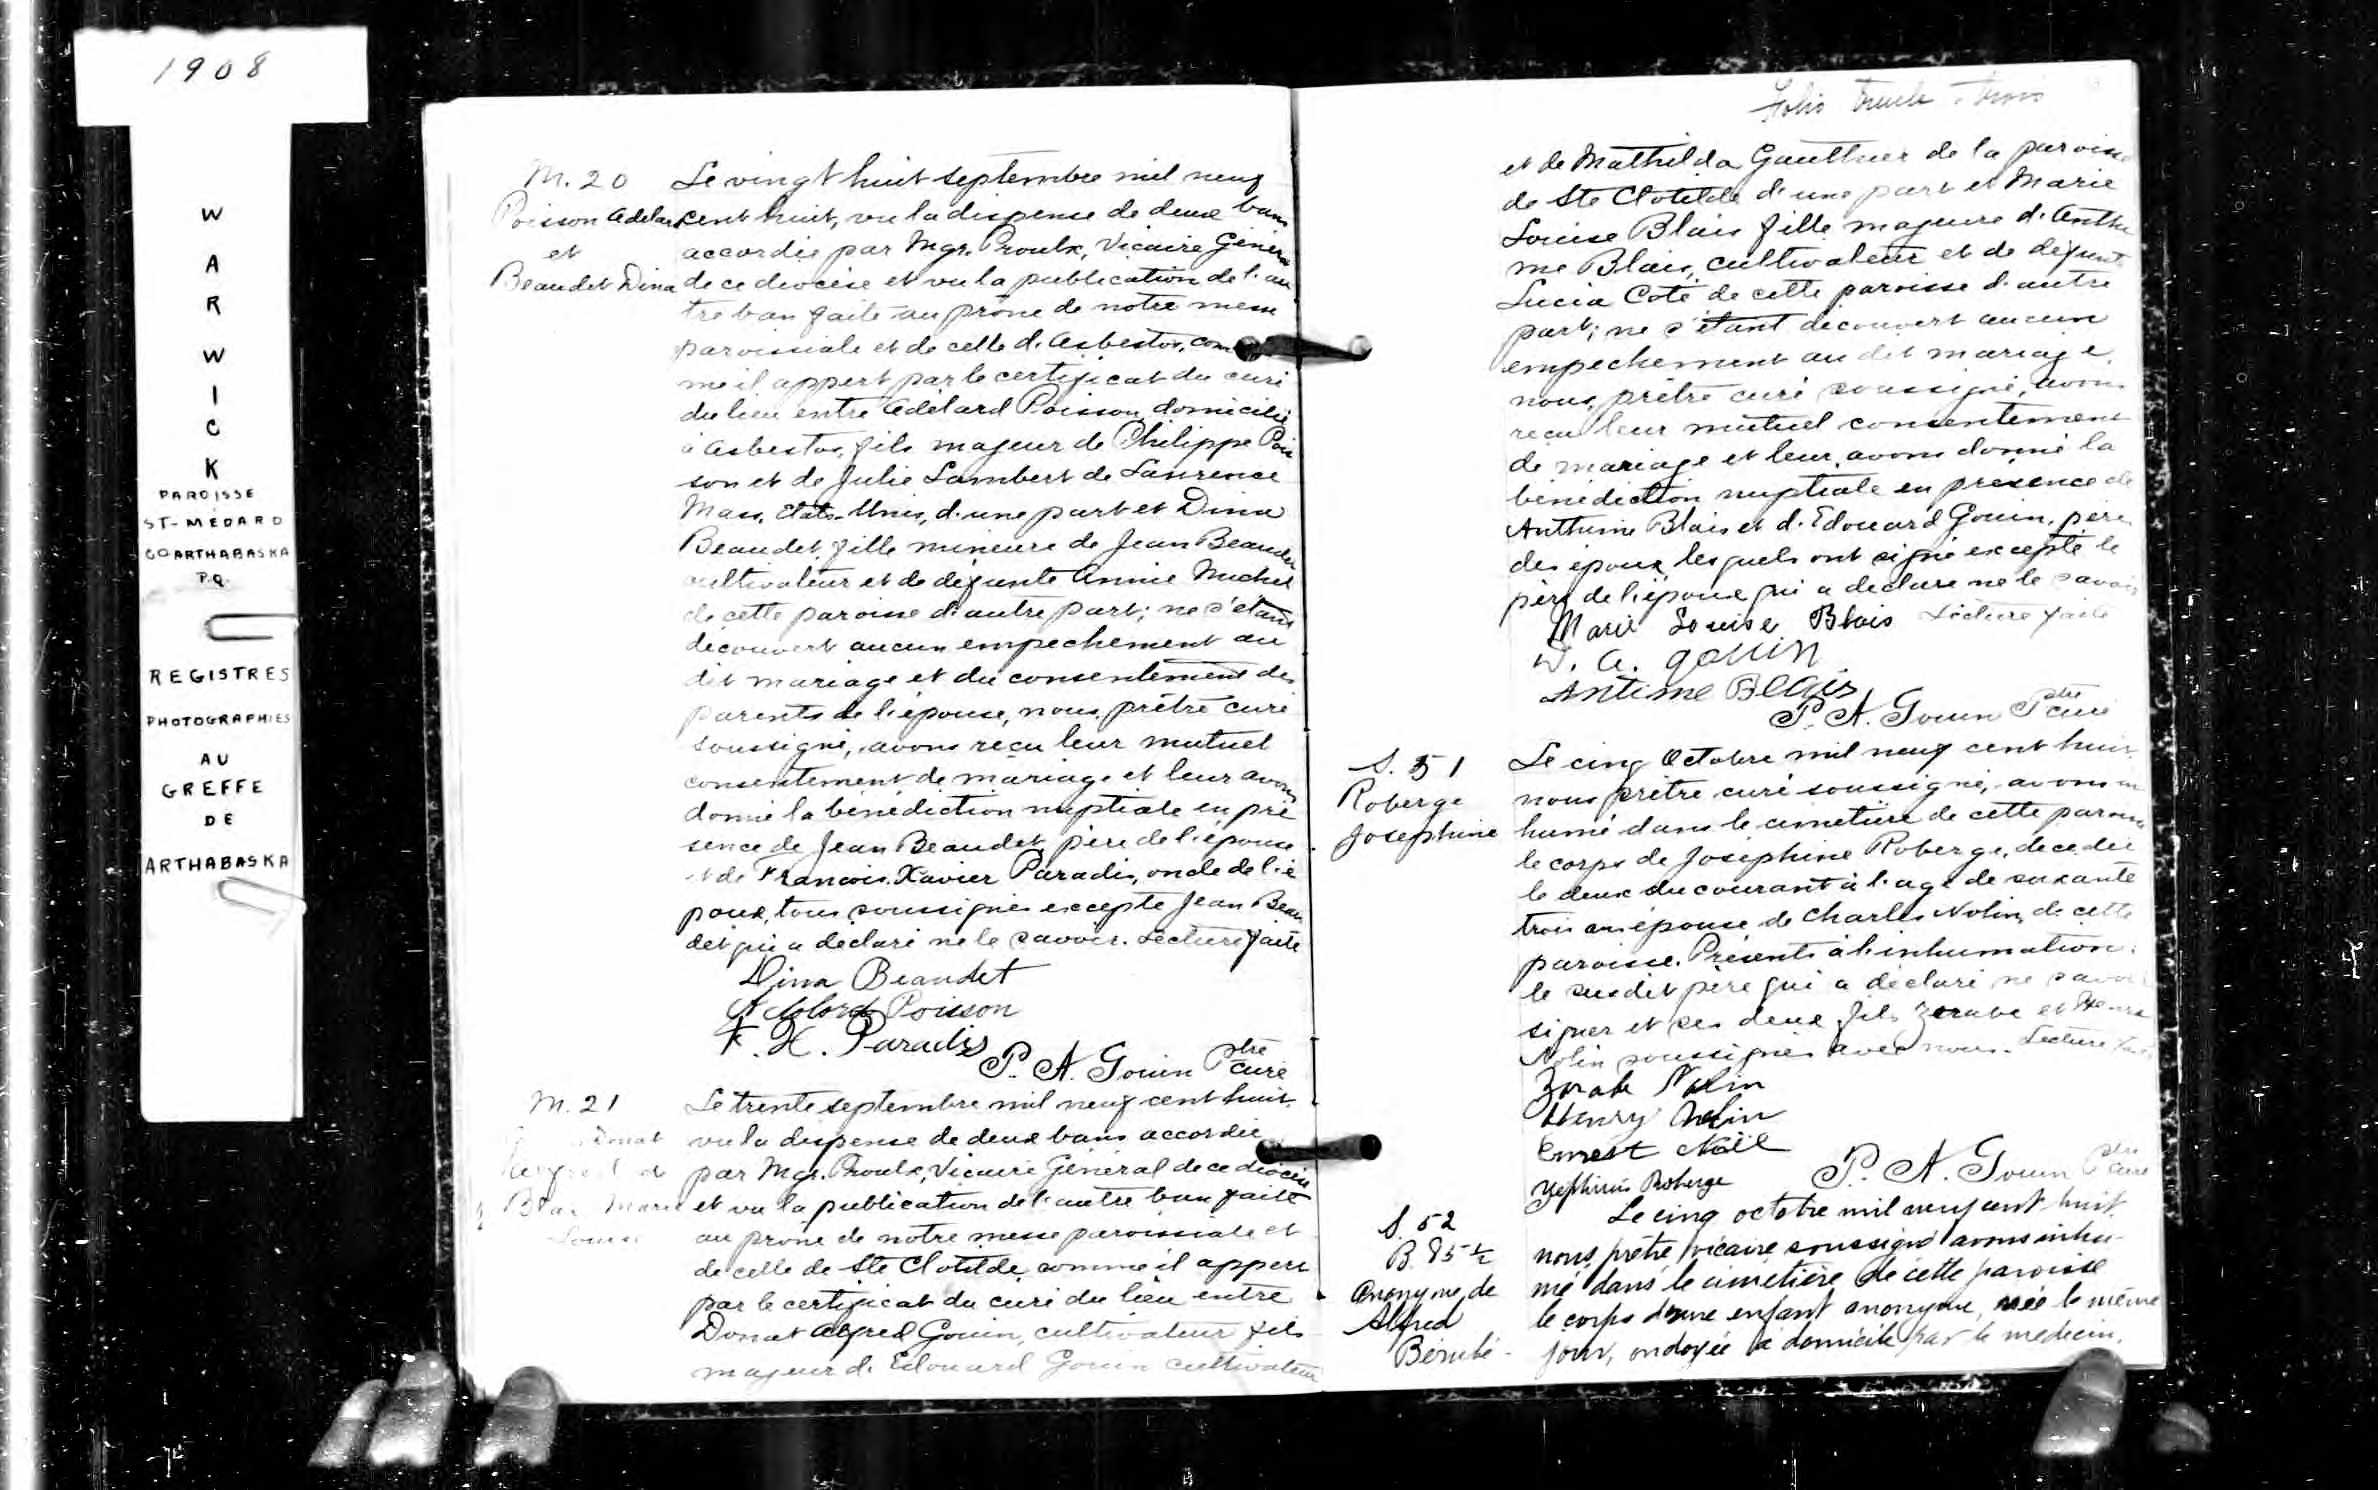 1908
W
A
R
W
I
C
K
PAROISSE
ST-MÉDARD
CO ARTHABASKA
P.Q.
REGISTRES
PHOTOGRAPHIES
AU
GREFFE
DE
ARTHABASKA
M. 20
Poisson Adelar
et
Beaudet Dina
Le vingt huit septembre mil neuf
cent huit, vu la dispense de deux bans
accordée par Mgr. Proulx, Vicaire Général
de ce diocèse et vu la publication de l'au
tre ban faite au prône de notre messe
paroissiale et de celle d'Asbestos, com
me il appert par le certificat du curé
du lieu entre Adélard Poisson, domicilié
à Asbestos, fils majeur de Philippe Pois
son et de Julie Lambert de Laurence
Mass, Etats-Unis, d'une part et Dina
Beaudet, fille mineure de Jean Beaudet
cultivateur et de défunte Annie Michel
de cette paroisse d'autre part; ne s'étant
découvert aucun empechement au
dit mariage et du consentement des
parents de l'épouse, nous, prêtre curé
soussigné, avons reçu leur mutuel
consentement de mariage et leur avons
donné la bénédiction nuptiale en pré
sence de Jean Beaudet, père de l'épouse
et de Francois-Xavier Paradis, oncle de l'é
poux, tous soussignés excepté Jean Beau
det qui a déclaré ne le savoir. Lecture faite
Dina Beaudet
Adelord Poisson
F. X. Paradis
P. A. Gouin Ptre curé
M. 21
Donat
Blai Marie
Louise
Le trente septembre mil neuf cent huit,
vu la dispense de deux bans accordée
par Mgr. Proulx, Vicaire Général de ce diocèse
et vu la publication de l'autre ban faite
au prône de notre messe paroissiale et
de celle de Ste Clotilde, comme il appert
par le certificat du curé du lieu entre
Donat Alfred Gouin, cultivateur fils
majeur d'Edouard Gouin cultivateur
Folio trente trois
et de Mathilda Gauthier de la paroisse
de Ste Clotilde d'une part et Marie
Louise Blais fille majeure d'Anthi
me Blais, cultivateur et de défunte
Lucia Coté de cette paroisse d'autre
part; ne s'étant découvert aucun
empechement au dit mariage,
nous, prêtre curé soussigné, avons
reçu leur mutuel consentement
de mariage et leur avons donné la
bénédiction nuptiale en présence de
Anthime Blais et d'Edouard Gouin, père
des époux, lesquels ont signé excepté le
père de l'époux qui a déclaré ne le savoir
Lecture faite
Marie Louise Blais
D. A. Gouin
Antime Blais
P. A. Gouin Ptre curé
S. 51
Roberge
Josephine
Le cinq Octobre mil neuf cent huit
nous prêtre curé soussigné, avons in
humé dans le cimetière de cette paroisse
le corps de Joséphine Roberge, décédée
le deux du courant à l'age de soixante
trois ans épouse de Charles Nolin, de cette
paroisse. Présents à l'inhumation:
le susdit père qui a déclaré ne savoir
signer et ses deux fils Zorabe et Henri
Nolin soussignés avec nous. Lecture faite
Zorabe Nolin
Henry Nolin
Ernest Noël
Zephirin Roberge
P. A. Gouin Ptre curé
S. 52
B. 85 1/2
Anonyme de
Alfred
Bérubé
Le cinq octobre mil neuf cent huit
nous, prêtre vicaire soussigné avons inhu-
mé dans le cimetière de cette paroisse
le corps d'une enfant anonyme, née le même
jour, ondoyée à domicile par le medecin,